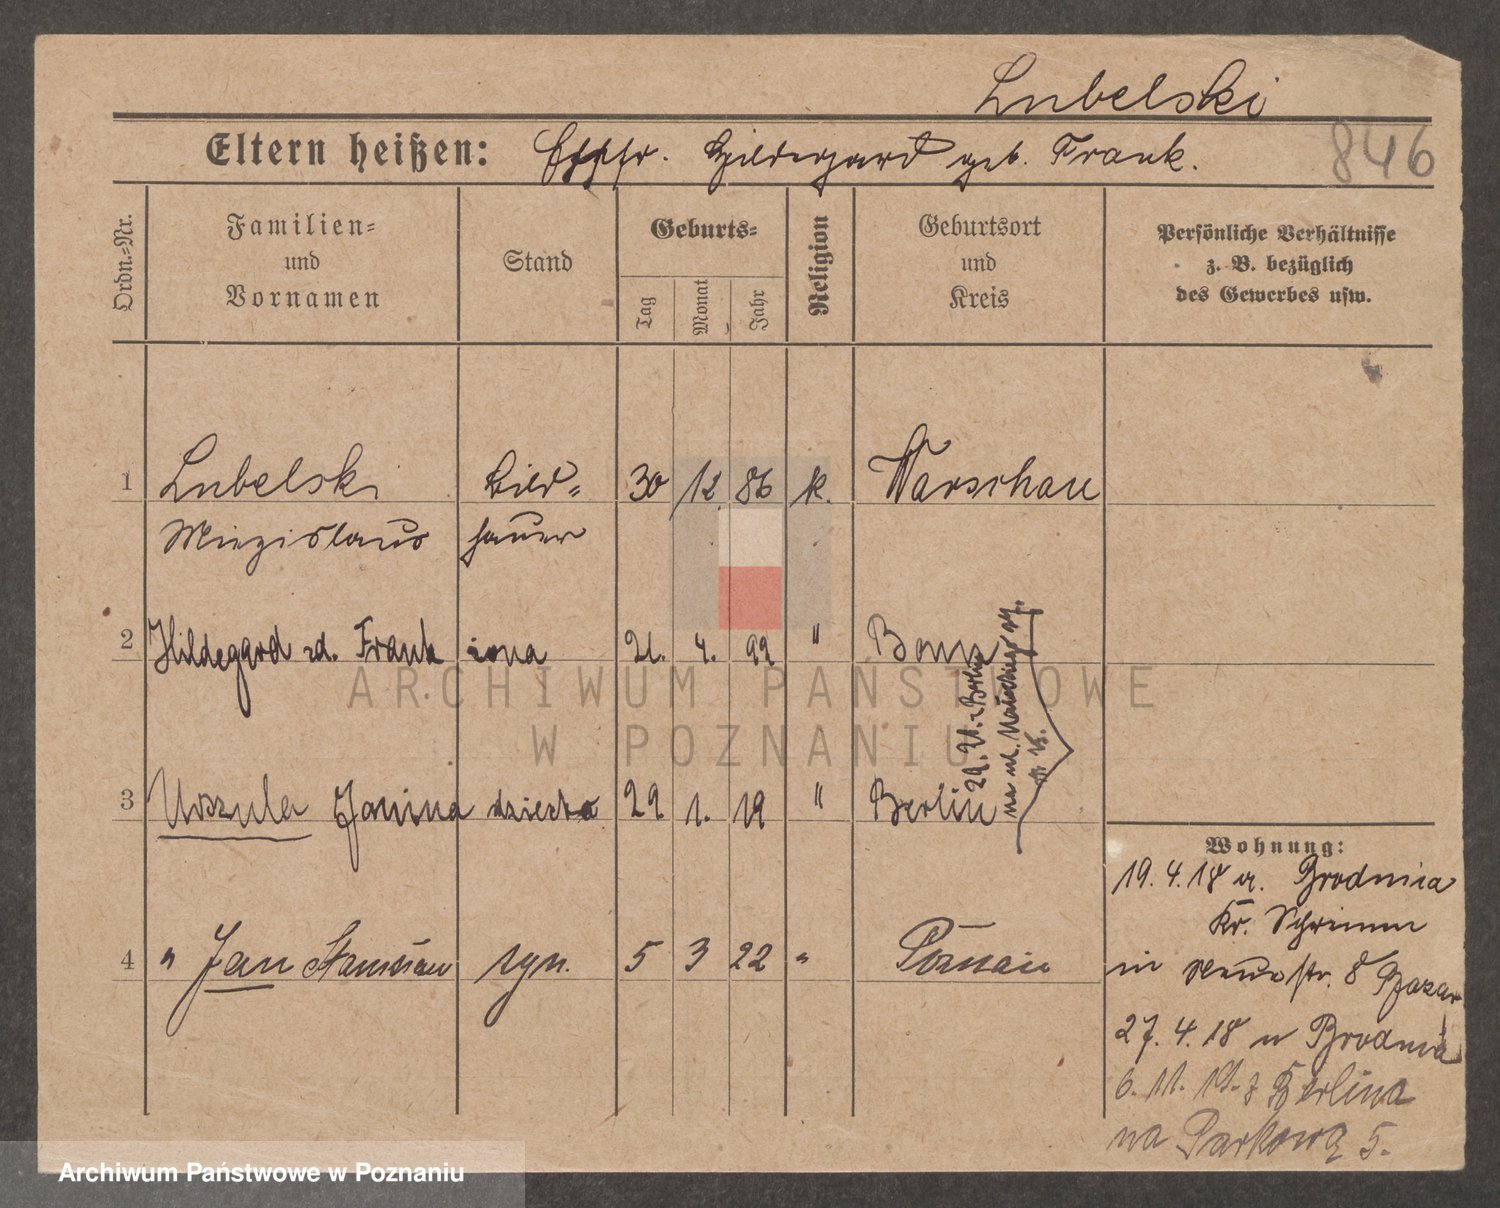 Lubelski
Eltern heißen: Ehefr. Hildegard geb. Frank.
846
Ordn.=Nr.
Familien=
und
Vornamen
Stand
Geburts=
Tag
Monat
Jahr
Religion
Geburtsort
und
Kreis
Persönliche Verhältnisse
z. B. bezüglich
des Gewerbes usw.
1 Lubelski Bild= 30 12 86 k. Warschau
Miezislaus hauer
2 Hildegard zd. Frank żona 21. 4. 99 " Bonn
29. 21. z Berlina
3 Urszula Janina dziecko 29. 1. 19 " Berlin
4 " Jan Stanisław syn. 5 3 22 " Poznań
Wohnung:
19. 4. 18 a. Brodnica
Kr. Schrimm
in Neue str. 8 Bazar
27. 4. 18 n Brodnica
6. 11. 19. z Berlina
na Parkową 5.
ARCHIWUM PAŃSTWOWE
W POZNANIU
Archiwum Państwowe w Poznaniu